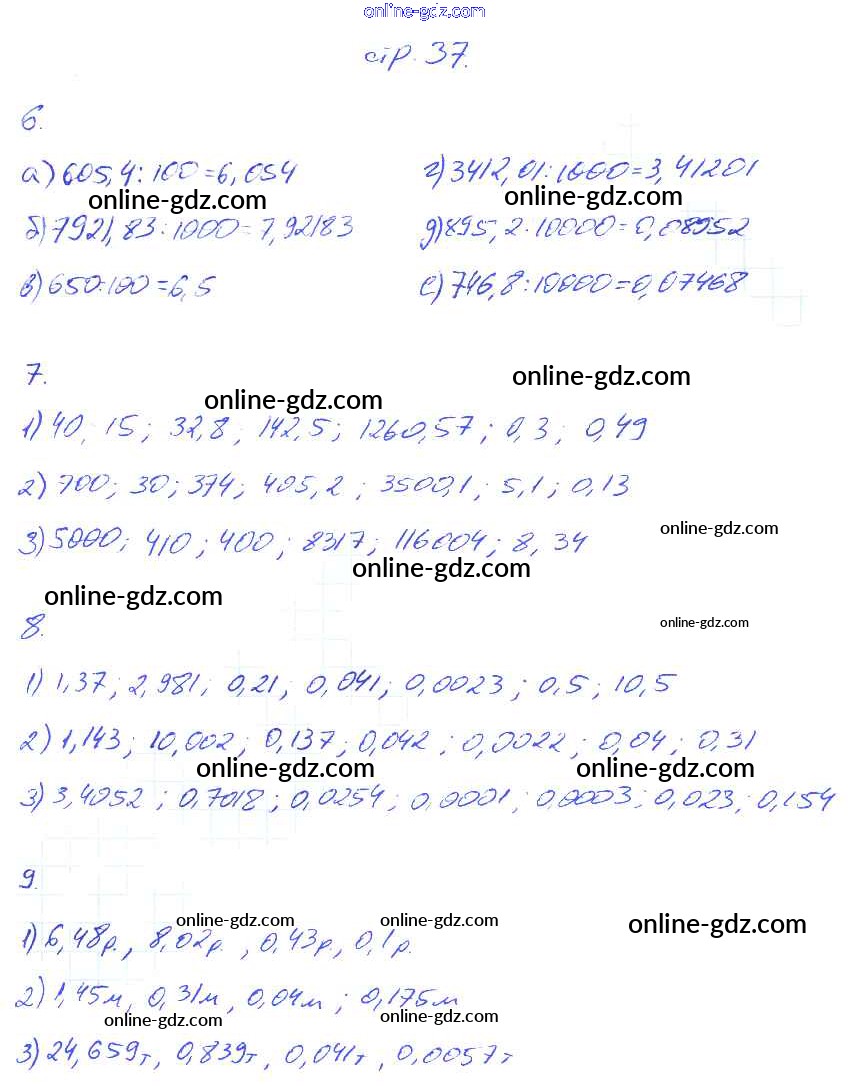 online-gdz.com
стр. 37.
6.
а) 605,4 : 100 = 6,054
г) 3412,01 : 1000 = 3,41201
online-gdz.com
online-gdz.com
б) 7921,83 : 1000 = 7,92183
д) 895,2 · 10000 = 0,08952
в) 650 : 100 = 6,5
е) 746,8 : 10000 = 0,07468
7.
online-gdz.com
online-gdz.com
1) 40; 15; 32,8; 142,5; 1260,57; 0,3; 0,49
2) 700; 30; 374; 405,2; 3500,1; 5,1; 0,13
3) 5000; 410; 400; 8317; 116004; 8,34
online-gdz.com
online-gdz.com
online-gdz.com
8.
online-gdz.com
1) 1,37; 2,981; 0,21; 0,041; 0,0023; 0,5; 10,5
2) 1,143; 10,002; 0,137; 0,042; 0,0022; 0,04; 0,31
online-gdz.com
online-gdz.com
3) 3,4052; 0,7018; 0,0254; 0,0001; 0,0003; 0,023; 0,154
9.
online-gdz.com
online-gdz.com
online-gdz.com
1) 6,48р., 8,02р., 0,43р, 0,1р.
2) 1,45м, 0,31м, 0,04м; 0,175м
online-gdz.com
online-gdz.com
3) 24,659т, 0,839т, 0,041т, 0,0057т